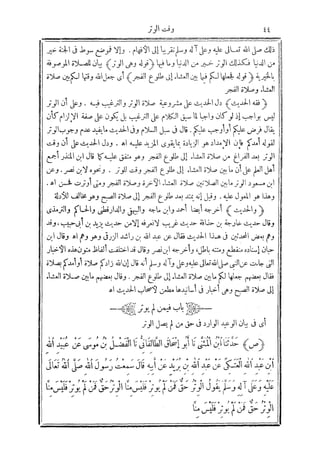 ٤٤ وقت الوتر
ذلك صلى الله تعالى عليه وعلى آله وسلم تقريبا إلى الأفهام . وإلا فموضع سوط فى الجنة خير
من الدنيا فكذلك الوتر خير من الدنيا وما فيها ﴿قوله وهى الوتر﴾ بيان للصلاة الموصوفة
بالخيرية ﴿قوله فجعلها لكم فيما بين العشاء إلى طلوع الفجر﴾ أى جعل الله وقتها لكم بين صلاة
العشاء وصلاة الفجر
﴿فقه الحديث﴾ دل الحديث على مشروعية صلاة الوتر والترغيب فيه . وعلى أن الوتر
ليس بواجب إذ لو كان واجبا لما سيق الكلام على الترغيب بل يكون على صفة الإلزام كأن
يقال فرض عليكم أو أوجب عليكم . قال فى سبل السلام وفى الحديث ما يفيد عدم وجوب الوتر
لقوله أمدكم فإن الإمداد هو الزيادة بما يقوى المزيد عليه اه . ودل الحديث على أن وقت
الوتر بعد الفراغ من صلاة العشاء إلى طلوع الفجر وهو متفق عليه كما قال ابن المنذر أجمع
أهل العلم على أن ما بين صلاة العشاء إلى طلوع الفجر وقت للوتر . ونحوه لابن نصر . وعن
ابن مسعود الوتر ما بين الصلاتين صلاة العشاء الآخرة وصلاة الفجر ومتى أوترت فحسن اه .
وهذا هو المعول عليه . وقيل إنه يمتد بعد طلوع الفجر إلى صلاة الصبح وهو مخالف للأدلة
﴿والحديث﴾ أخرجه أيضا أحمد وابن ماجه والبيهقى والدارقطنى والحاكم والترمذى
وقال حديث خارجة بن حذافة حديث غريب لا نعرفه إلا من حديث يزيد بن أبى حبيب . وقد
وهم بعض المحدثين فى هذا الحديث فقال عن عبد الله بن راشد الزرقى وهو وهم اه وقال ابن
حبان إسناده منقطع ومتنه باطل . وأخرجه ابن نصر وقال قد اختلفت ألفاظ متون هذه الأخبار
التى جاءت عن النبى صلى الله تعالى عليه وعلى آله وسلم أنه قال إن الله زادكم صلاة أو أمدكم بصلاة
فقال بعضهم جعلها لكم ما بين صلاة العشاء إلى طلوع الفجر . وقال بعضهم ما بين صلاة العشاء
إلى صلاة الصبح وهى أخبار فى أسانيدها مطعن لأصحاب الحديث اه
باب فيمن لم يوتر
أى فى بيان الوعيد الوارد فى حق من لم يصل الوتر
﴿ص﴾ حَدَّثَنَا ابْنُ الْمُثَنَّى نَا أَبُو إِسْحَاقَ الطَّالَقَانِيُّ نَا الْفَضْلُ بْنُ مُوسَى عَنْ عُبَيْدِ اللهِ
ابْنِ عَبْدِ اللهِ الْعَتَكِيِّ عَنْ عَبْدِ اللهِ بْنِ بُرَيْدَةَ عَنْ أَبِيهِ قَالَ سَمِعْتُ رَسُولَ اللهِ صَلَّى اللهُ تَعَالَى
عَلَيْهِ وَعَلَى آلِهِ وَسَلَّمَ يَقُولُ الْوِتْرُ حَقٌّ فَمَنْ لَمْ يُوتِرْ فَلَيْسَ مِنَّا الْوِتْرُ حَقٌّ فَمَنْ لَمْ يُوتِرْ فَلَيْسَ مِنَّا
الْوِتْرُ حَقٌّ فَمَنْ لَمْ يُوتِرْ فَلَيْسَ مِنَّا